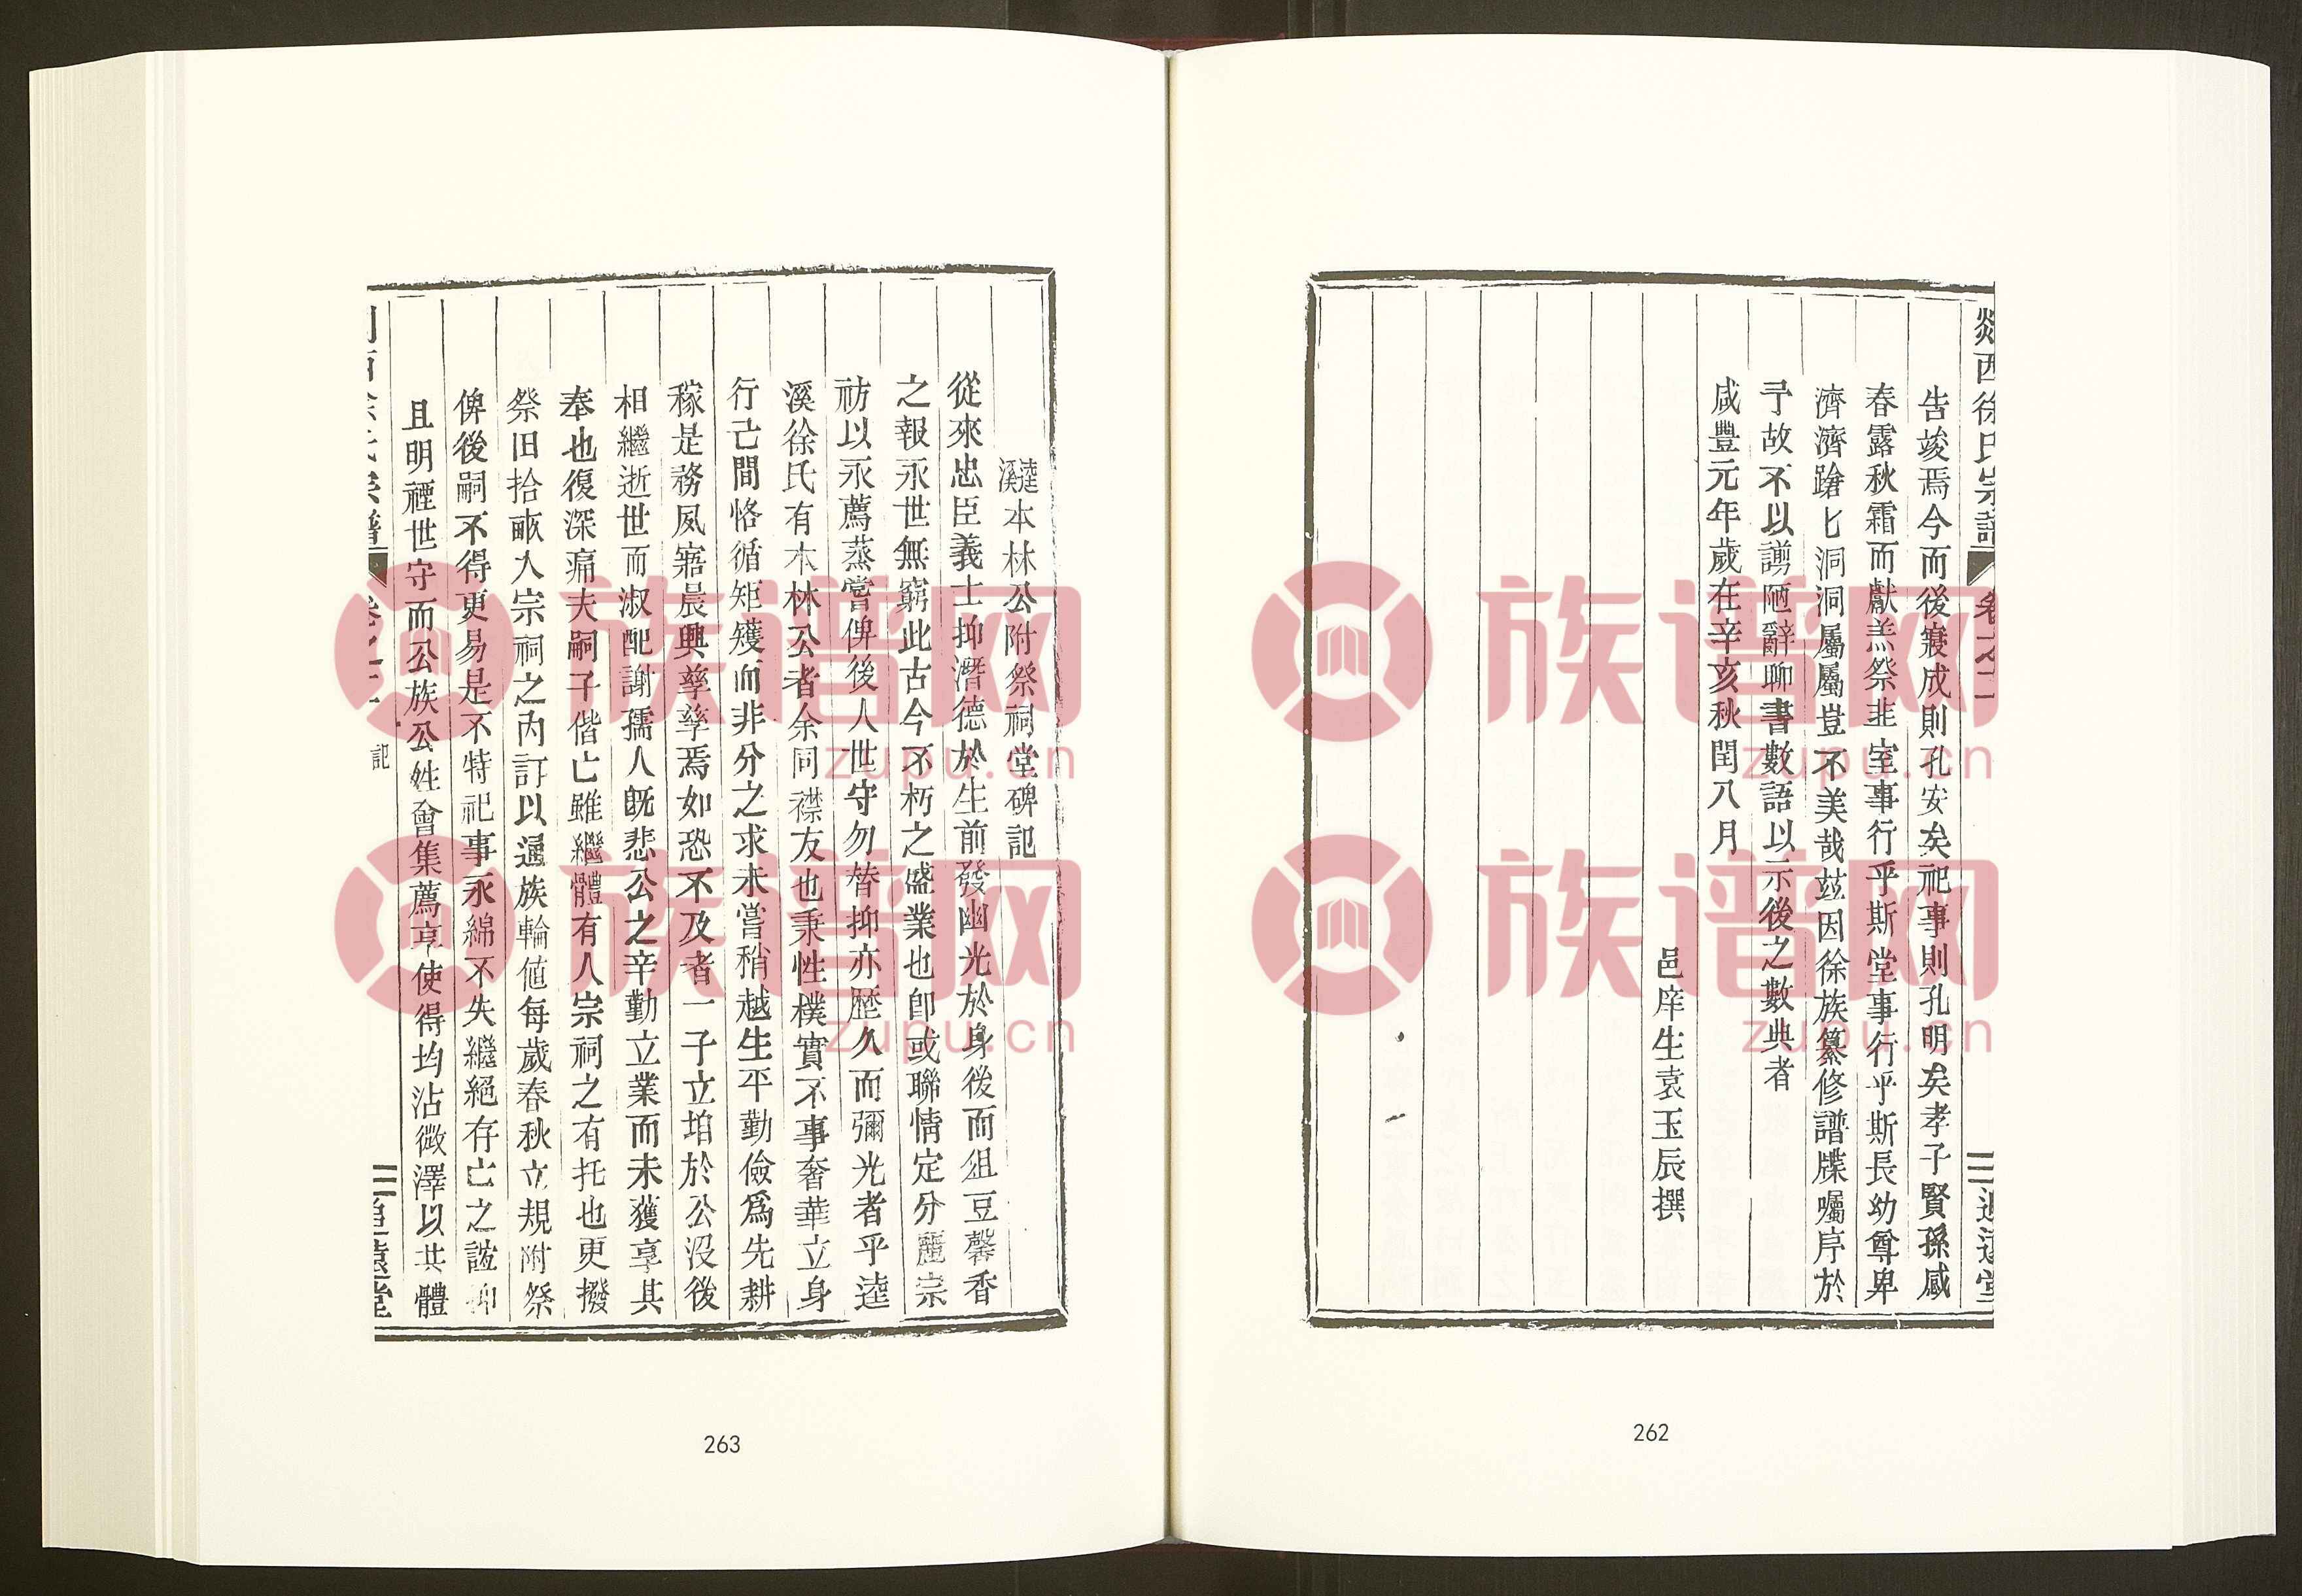 剡西徐氏宗譜 卷之二 三 追遠堂
告竣焉今而後寢成則孔安矣祀事則孔明矣孝子賢孫感
春露秋霜而獻羔祭韭室事行乎斯堂事行乎斯長幼尊卑
濟濟蹌匕洞洞屬屬豈不美哉玆因徐族纂修譜牒囑序於
予故不以謭陋辭聊書數語以示後之數典者
咸豐元年歲在辛亥秋閏八月
邑庠生袁玉辰撰
262
逵溪本林公附祭祠堂碑記
從來忠臣義士抑潛德於生前發幽光於身後而俎豆馨香
之報永世無窮此古今不朽之盛業也卽或聯情定分麗宗
祊以永薦蒸嘗俾後人世守勿替抑亦歷久而彌光者乎逵
溪徐氏有本林公者余同襟友也秉性樸實不事奢華立身
行己間恪循矩矱而非分之求未嘗稍越生平勤儉爲先耕
稼是務夙寤晨興孳孳焉如恐不及者一子立珀於公沒後
相繼逝世而淑配謝孺人旣悲公之辛勤立業而未獲享其
奉也復深痛夫嗣子偕亡雖繼體有人宗祠之有托也更撥
祭田拾畝入宗祠之內訂以通族輪値每歲春秋立規附祭
俾後嗣不得更易是不特祀事永綿不失繼絕存亡之誼抑
且明禋世守而公族公姓會集薦享使得均沾微澤以共體
記 三 追遠堂
263
族谱网
zupu.cn
族谱网
zupu.cn
族谱网
zupu.cn
族谱网
zupu.cn